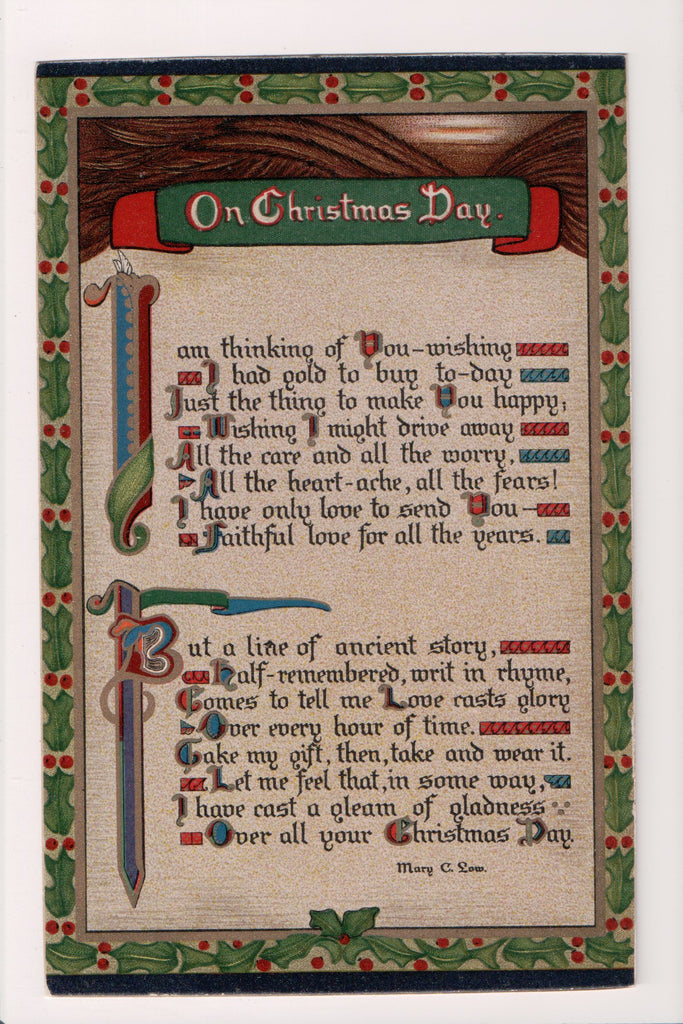 On Christmas Day.
I am thinking of You-wishing
I had gold to buy to-day
Just the thing to make You happy;
Wishing I might drive away
All the care and all the worry,
All the heart-ache, all the fears!
I have only love to send You—
Faithful love for all the years.
But a line of ancient story,
Half-remembered, writ in rhyme,
Comes to tell me Love casts glory
Over every hour of time.
Take my gift, then, take and wear it.
Let me feel that, in some way,
I have cast a gleam of gladness
Over all your Christmas Day.
Mary C. Low.